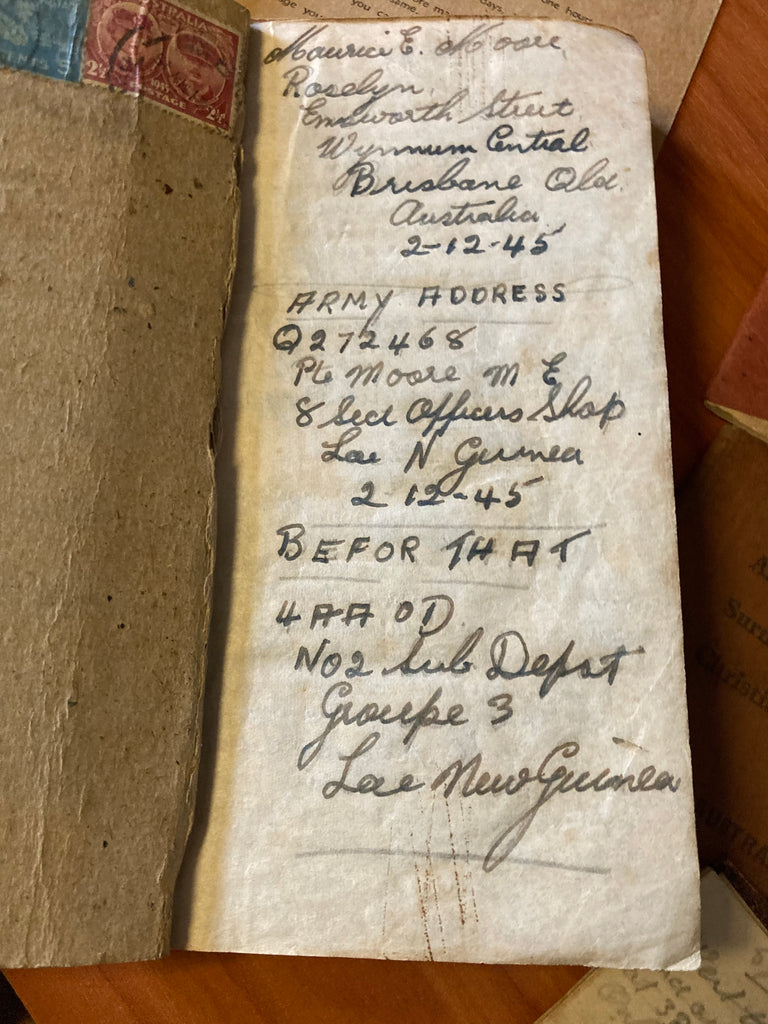 AUSTRALIA
2½
2½
POSTAGE
Maurice E. Moore.
Roselyn.
Emsworth Street
Wynnum Central
Brisbane Qld.
Australia.
2-12-45
ARMY ADDRESS
Q272468
Pte Moore M E
8 Sect Officers Shop
Lae N Guinea
2 12-45
BEFOR THAT
4 AAOD
No2 Sub Depot
Groupe 3
Lae New Guinea